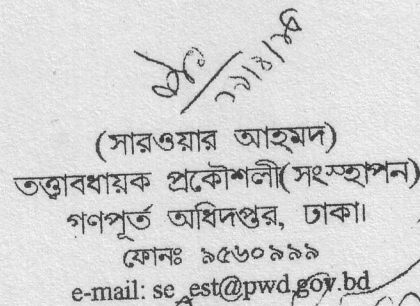 (সারওয়ার আহমদ)
তত্ত্বাবধায়ক প্রকৌশলী(সংস্হাপন)
গণপূর্ত অধিদপ্তর, ঢাকা।
ফোনঃ ৯৫৬০৯৯৯
e-mail: se_est@pwd.gov.bd